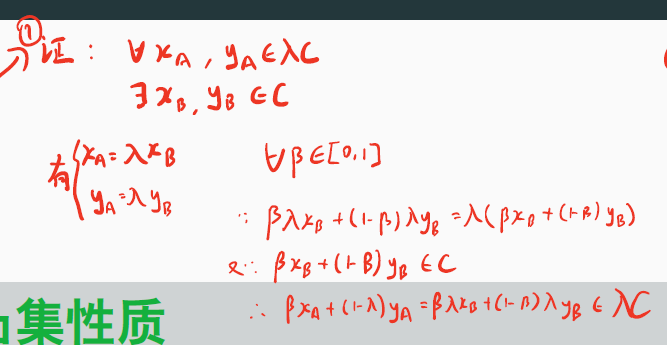 ① 证: ∀ x_A, y_A ∈ λC
∃ x_B, y_B ∈ C
有 { x_A = λx_B
y_A = λy_B
∀ β ∈ [0,1]
∵ βλx_B + (1-β)λy_B = λ(βx_B + (1-β)y_B)
又∵ βx_B + (1-β)y_B ∈ C
∴ βx_A + (1-λ)y_A = βλx_B + (1-β)λy_B ∈ λC
集性质